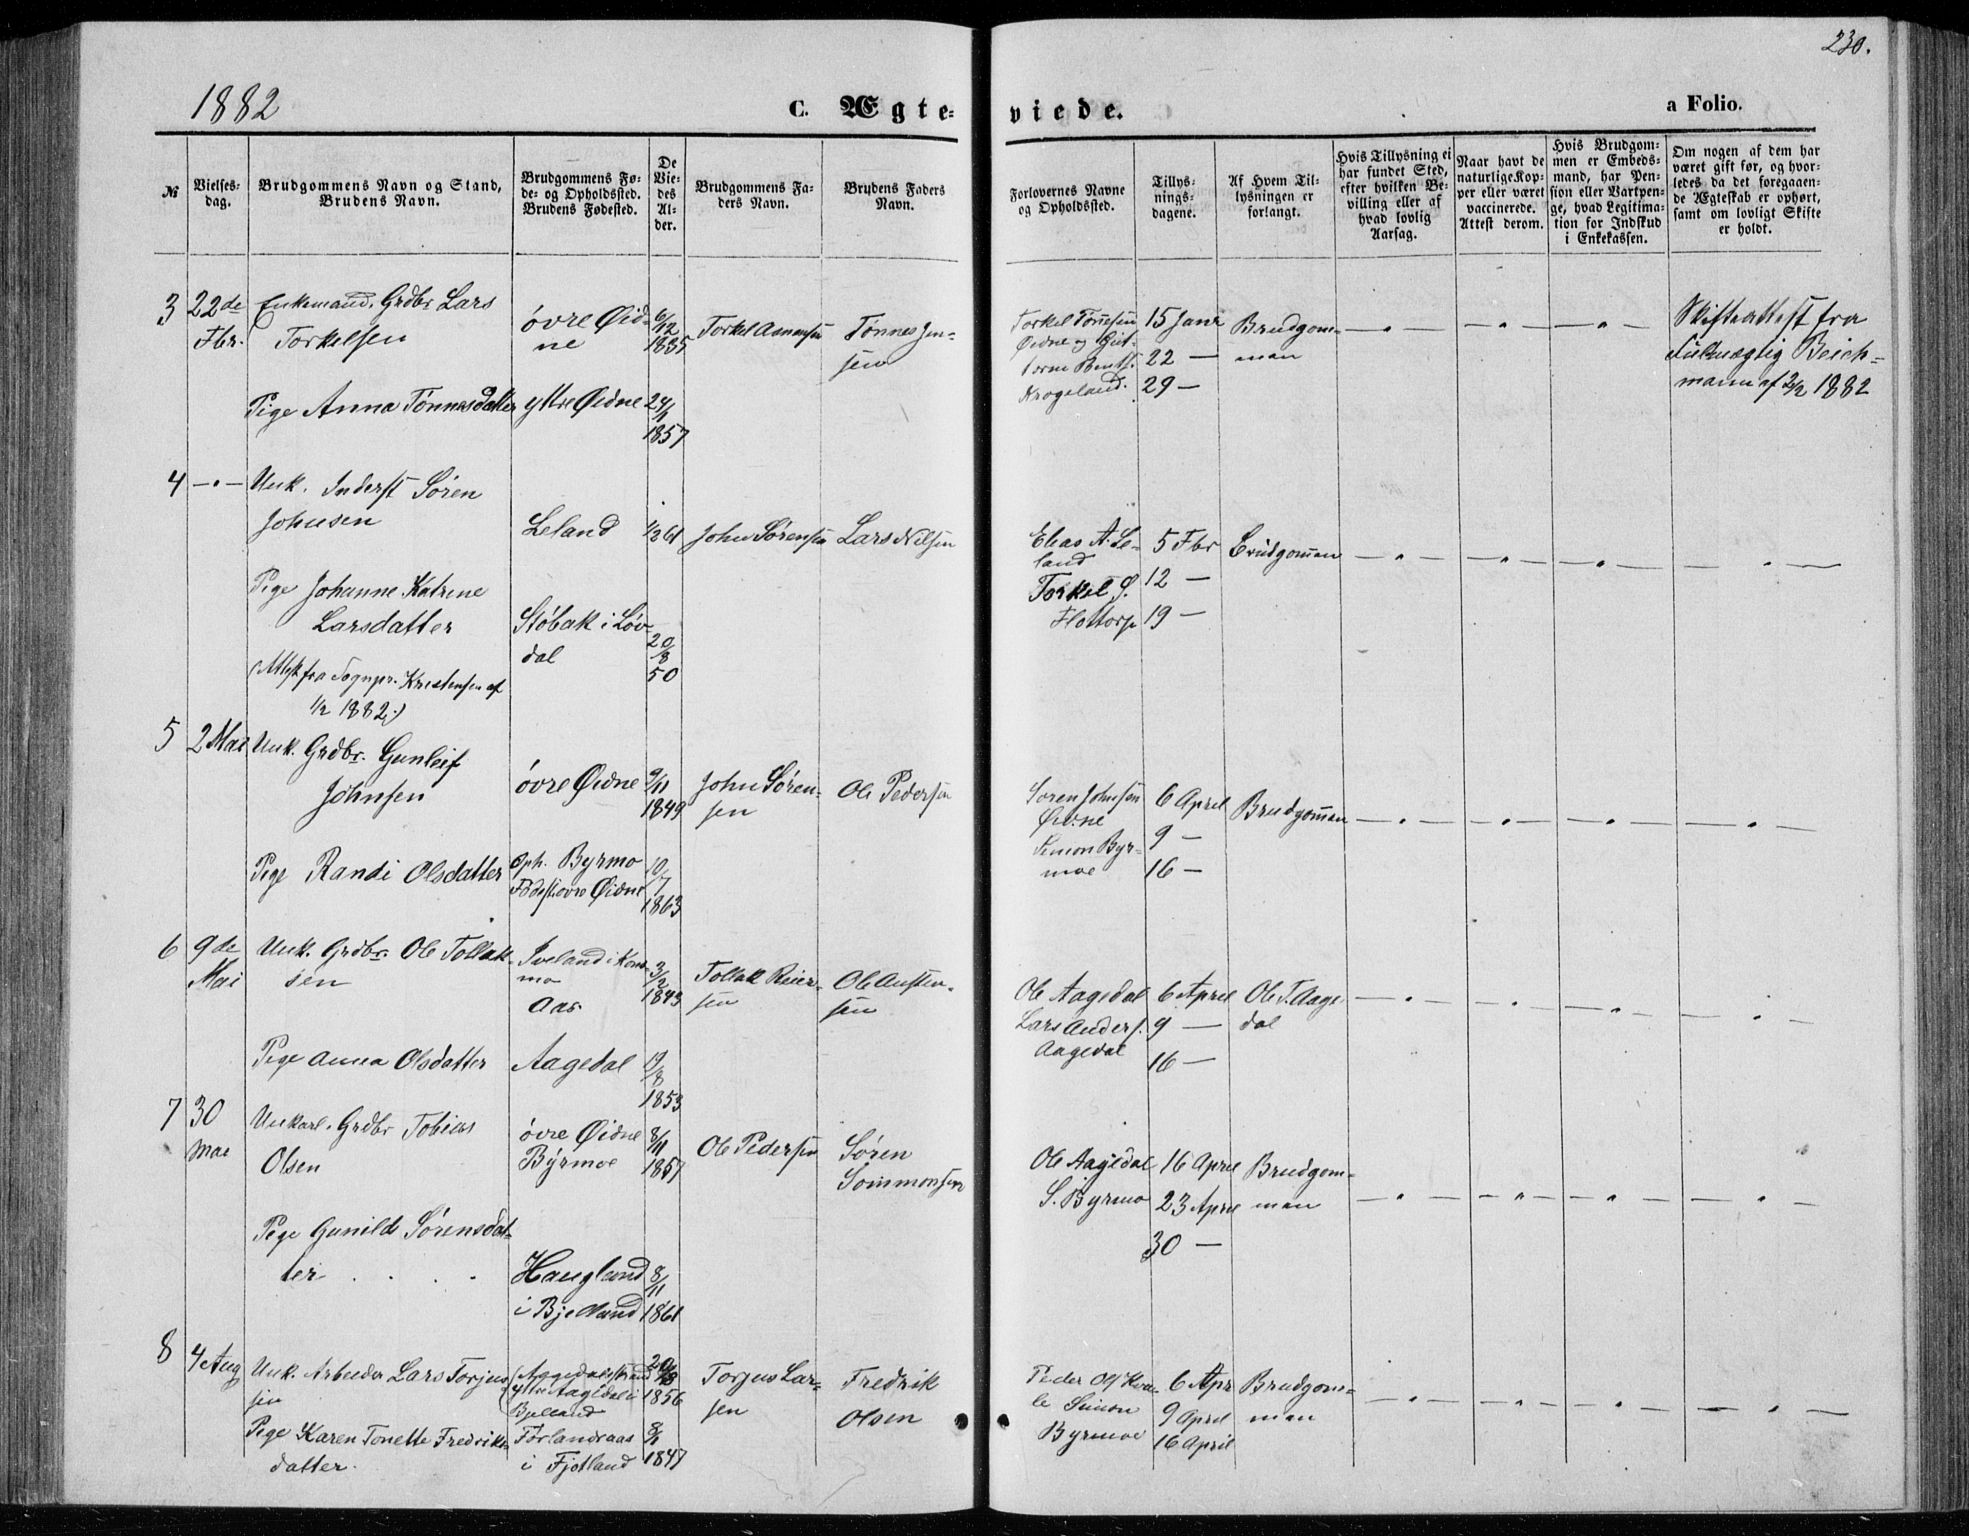 230.
1882
C. Ægte-
viede.
a Folio.
№
Vielses-
dag.
Brudgommens Navn og Stand,
Brudens Navn.
Brudgommens Fø-
de- og Opholdssted.
Brudens Fødested.
De
Vie-
des
Al-
der.
Brudgommens Fa-
ders Navn.
Brudens Faders
Navn.
Forlovernes Navne
og Opholdssted.
Tillys-
nings-
dagene.
Af Hvem Til-
lysningen er
forlangt.
Hvis Tillysning ei
har fundet Sted,
efter hvilken Be-
villing eller af
hvad lovlig
Aarsag.
Naar havt de
naturlige Kop-
per eller været
vaccinerede.
Attest derom.
Hvis Brudgom-
men er Embeds-
mand, har Pen-
sion eller Vartpen-
ge, hvad Legitima-
tion for Indskud
i Enkekassen.
Om nogen af dem har
været gift før, og hvor-
ledes da det foregaaen-
de Ægteskab er ophørt,
samt om lovligt Skifte
er holdt.
3
22de
Fbr.
Enkemand. Grdbr Lars
Torkelsen
øvre Øid-
ne
6/12
1835
Torkel Asmensen
Tønnes Jen-
sen
Torkel Tønesen
Øidne og Gut-
torm Bents.
Krogeland.
15 Janr
22 —
29 —
Brudgom-
man
Skifteattest fra
Fulmægtig Beich-
mann af 2/2 1882
Pige Anna Tønnesdatter
yttre Øidne
24/1
1857
4
— " —
Unk. Inderst Søren
Johnsen
Leland
1/2 61
John Sørensen
Lars Nilsen
Elias A. Le-
land
Torkel S.
Flottorp
5 Fbr
12 —
19 —
Brudgoman
Pige Johanne Katrine
Larsdatter
Støbak i Løv-
dal
20/8
50
(Attest fra Sognpr. Kristensen af
1/2 1882.)
5
2 Mai
Unk. Grdbr. Gunleif
Johnsen
øvre Øidne
9/11
1849
John Søren-
sen
Ole Pedersen
Søren Johnsen
Øidne
Simon Byr-
moe
6 April
9 —
16 —
Brudgoman
Pige Randi Olsdatter
Oph. Byrmo
Fødest. øvre Øidne
10/7
1863
6
9de
Mai
Unk. Grdbr. Ole Tollak-
sen
Iveland i Kons-
mo
Aas
3/2
1843
Tollak Reier-
sen
Ole Austen-
sen
Ole Aagedal
Lars Anders.
Aagedal
6 April
9 —
16 —
Ole T. Aage-
dal
Pige Anna Olsdatter
Aagedal
19/8
1853
7
30
Mai
Unkarl. Grdbr Tobias
Olsen
øvre Øidne
Byrmoe
8/11
1857
Ole Pedersen
Søren
Sommonsen
Ole Aagedal
S. Byrmo
16 April
23 April
30 —
Brudgom-
man
Pige Gunild Sørensdat-
ter
Haugland
i Bjelland
8/11
1861
8
4 Aug
Unk. Arbeider Lars Torjus-
sen
(Aagedalstrand
yttre Aagedal i
Bjelland
1856
Torjus Lar-
sen
Fredrik
Olsen
Peder Ols. Kva-
le Simon
Byrmoe
6 Apr
9 April
16 April
Brudgom-
man
Pige Karen Tonette Fredriks-
datter.
Førlandsaas
i Fjotland
1847